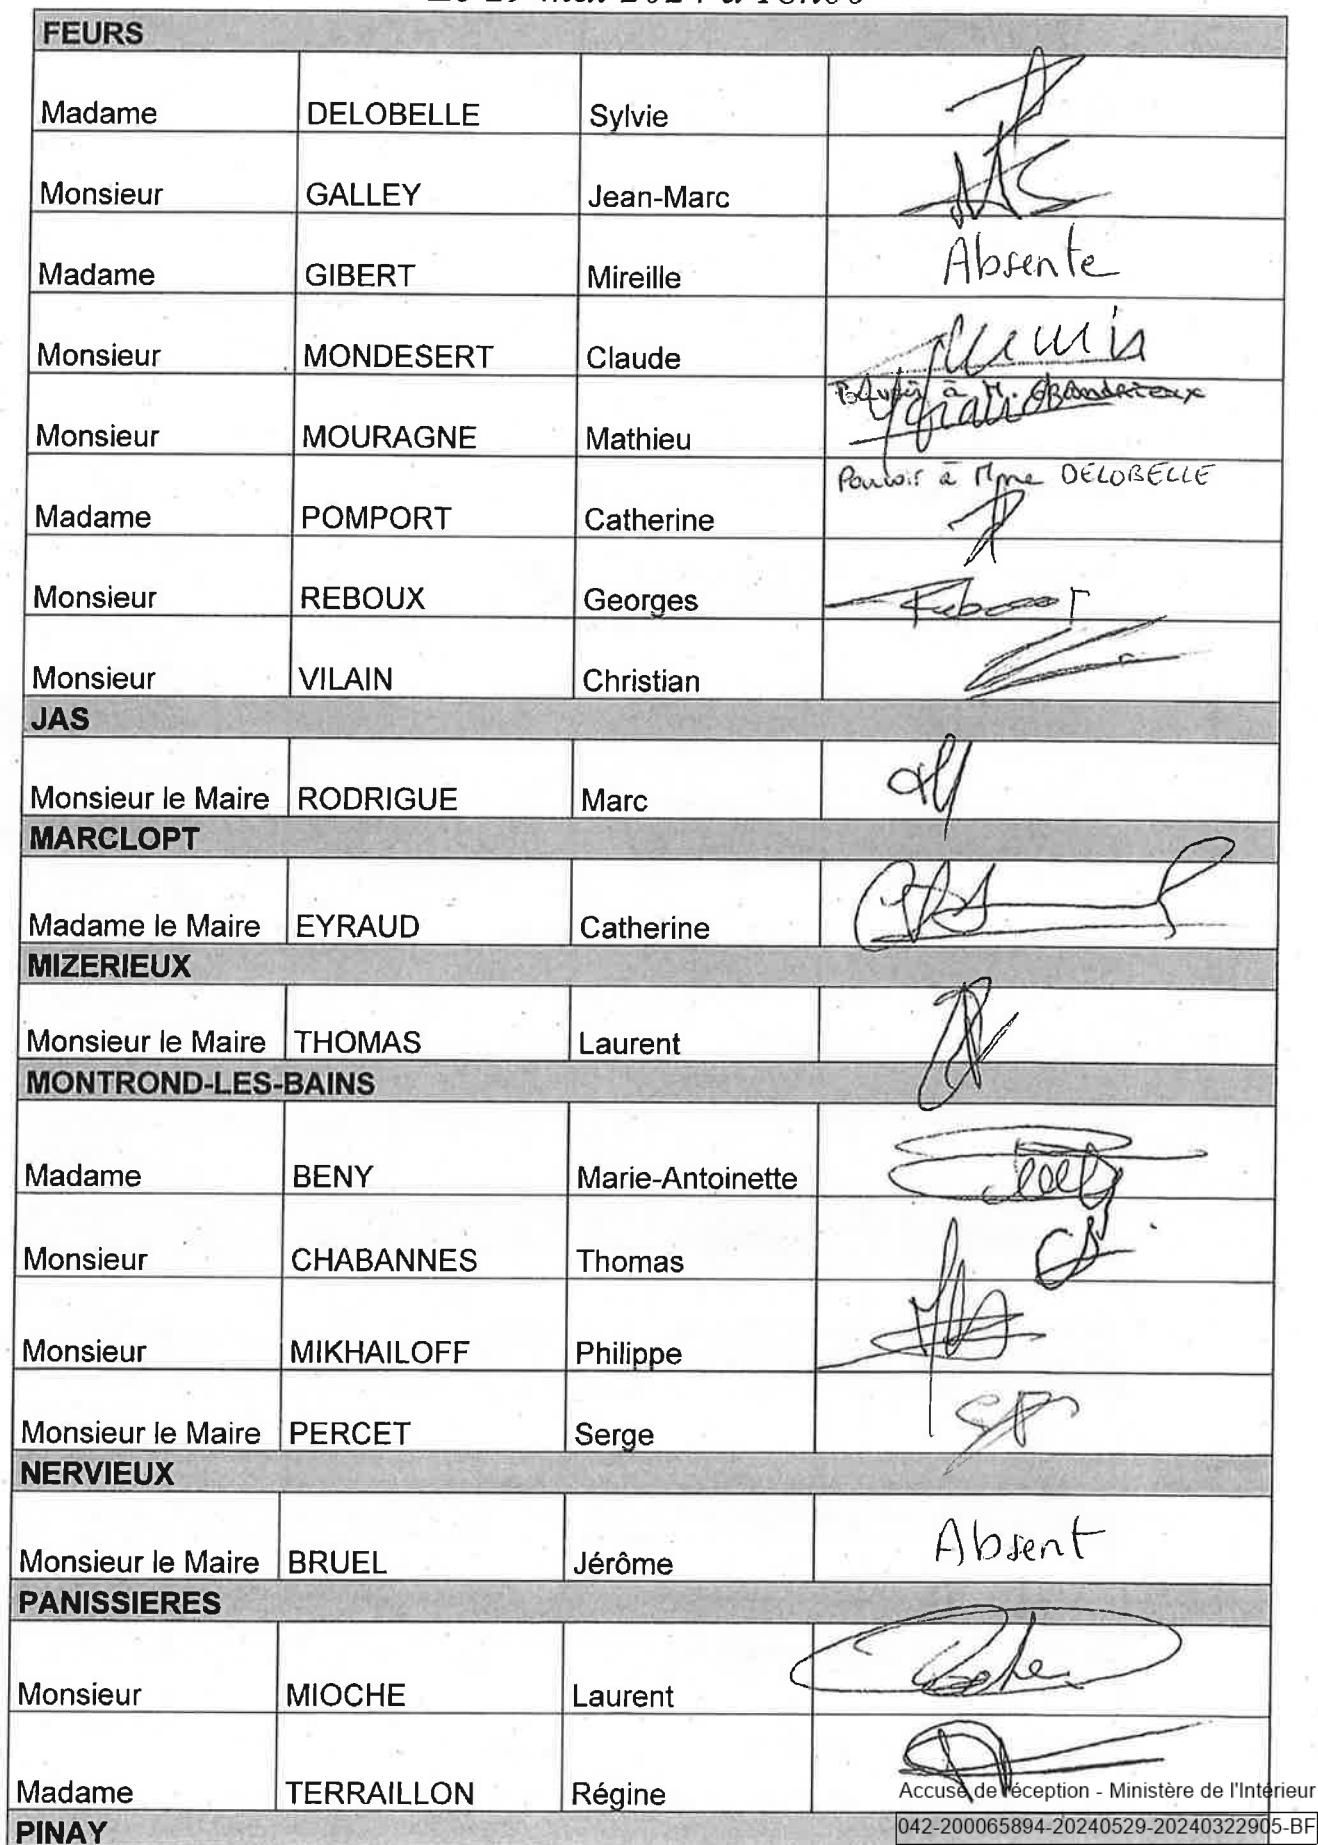 FEURS
Madame DELOBELLE Sylvie
Monsieur GALLEY Jean-Marc
Madame GIBERT Mireille Absente
Monsieur MONDESERT Claude
Pouvoir à M. GRANDRIEUX
Monsieur MOURAGNE Mathieu
Pouvoir à Mme DELOBELLE
Madame POMPORT Catherine
Monsieur REBOUX Georges
Monsieur VILAIN Christian
JAS
Monsieur le Maire RODRIGUE Marc
MARCLOPT
Madame le Maire EYRAUD Catherine
MIZERIEUX
Monsieur le Maire THOMAS Laurent
MONTROND-LES-BAINS
Madame BENY Marie-Antoinette
Monsieur CHABANNES Thomas
Monsieur MIKHAILOFF Philippe
Monsieur le Maire PERCET Serge
NERVIEUX
Monsieur le Maire BRUEL Jérôme Absent
PANISSIERES
Monsieur MIOCHE Laurent
Madame TERRAILLON Régine
Accusé de réception - Ministère de l'Intérieur
PINAY
042-200065894-20240529-20240322905-BF